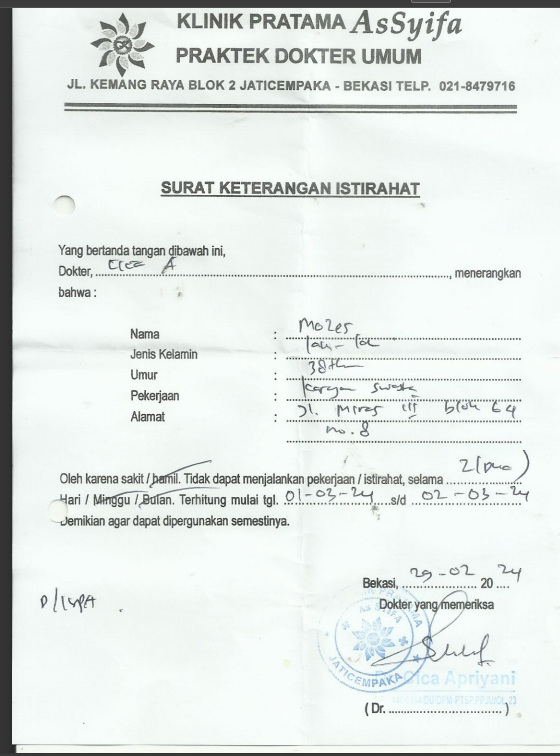 KLINIK PRATAMA AsSyifa
PRAKTEK DOKTER UMUM
JL. KEMANG RAYA BLOK 2 JATICEMPAKA - BEKASI TELP. 021-8479716
SURAT KETERANGAN ISTIRAHAT
Yang bertanda tangan dibawah ini,
Dokter, A, menerangkan
bahwa :
Nama : Mozes
Jenis Kelamin : laki-laki
Umur : 38 thn
Pekerjaan : Karyawan Swasta
Alamat : Jl. III blok 64
no. 8
Oleh karena sakit / hamil. Tidak dapat menjalankan pekerjaan / istirahat, selama 2 (dua)
Hari / Minggu / Bulan. Terhitung mulai tgl. 01-03-24 s/d 02-03-24
Demikian agar dapat dipergunakan semestinya.
Bekasi, 29-02 20 24
D/ISPA
Dokter yang memeriksa
AS SYIFA
JATICEMPAKA
Cica Apriyani
(Dr. )